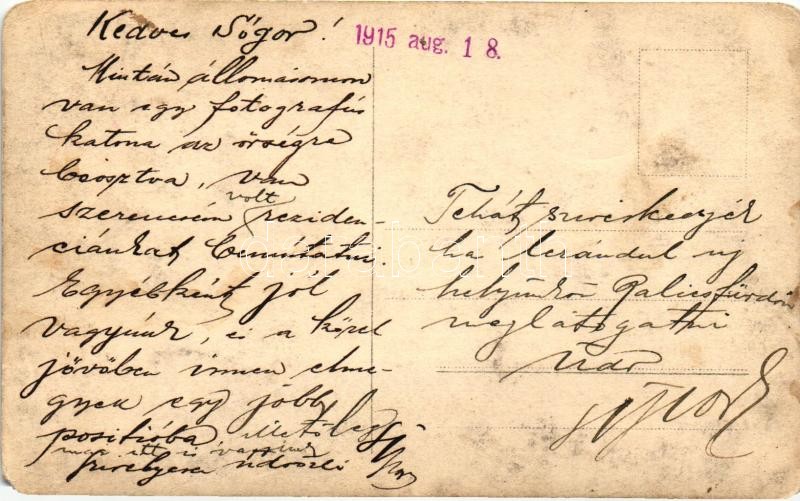 Kedves Sógor!
1915 aug. 18.
Miután állomásomon
van egy fotografus
katona az őrségre
beosztva, van
volt
szerencsém reziden-
ciánkat bemútatni.
Egyébként jól
vagyunk, és a közel
jövőben innen elme-
gyek egy jobb
positióba illetőleg
már itt is vagyunk
szivélyesen üdvözli
Tehát szíveskedjék
ha kirándul új
helyünkön Palicsfürdőn
meglátogatni
Üdv